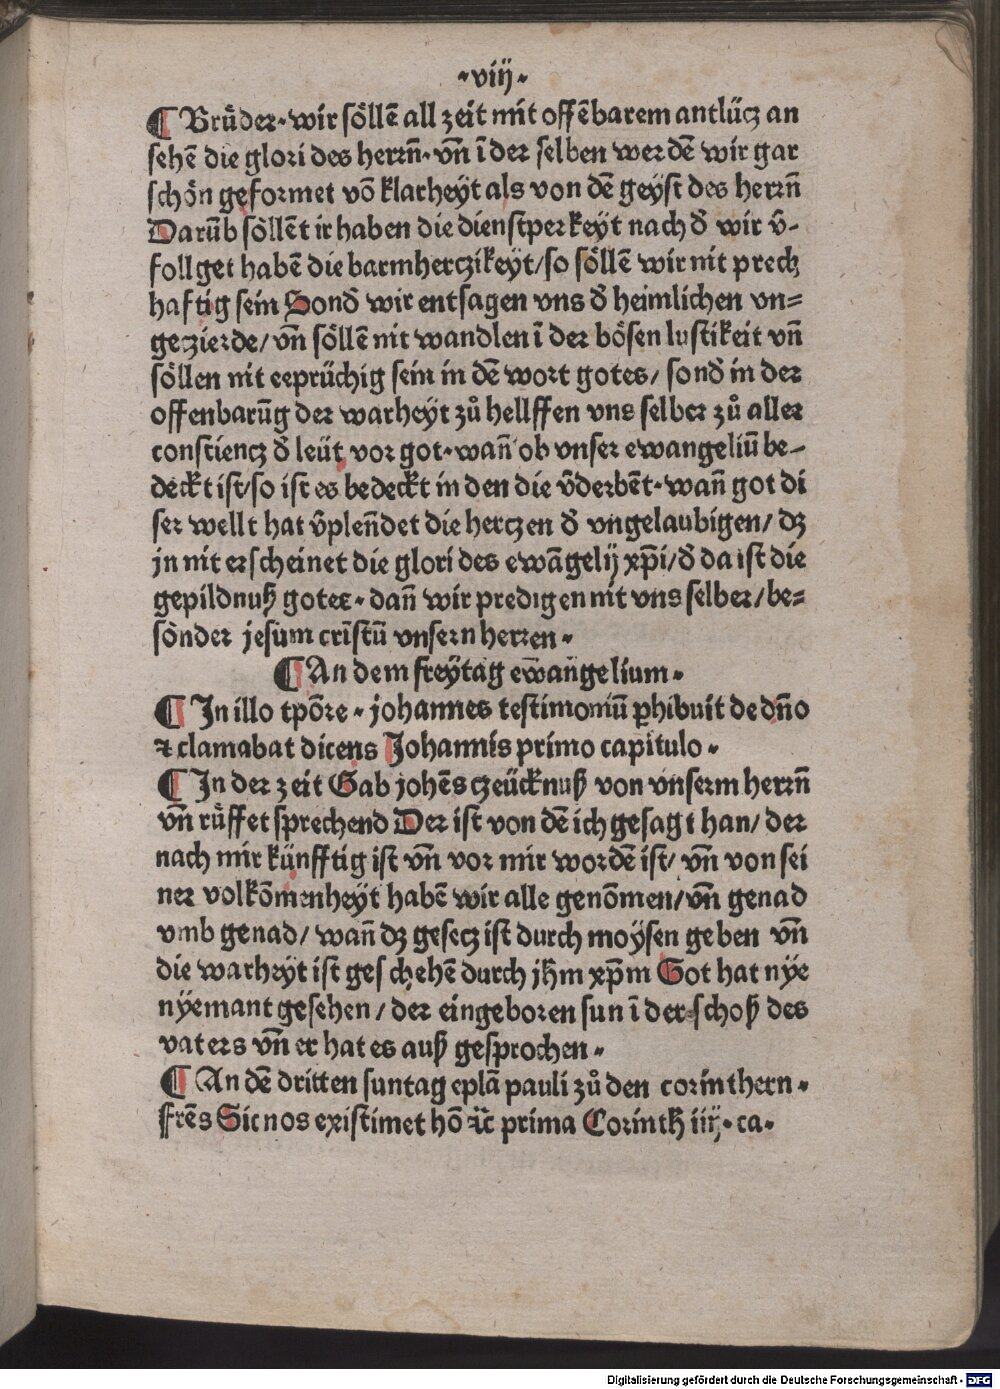 ·viij·
¶ Brůder·wir söllē all zeit mit offēbarem antlücz an
sehē die glori des herrn̄·vn̄ ī der selben werdē wir gar
schön geformet vō klarheyt als von dē geyst des herrn̄
Darūb söllēt ir haben die dienstperkeyt nach d̄ wir v̄-
follget habē die barmherczikeyt/so söllē wir nit prech
haftig sein Sond̄ wir entsagen vns d̄ heimlichen vn=
gezierde/vn̄ söllē nit wandlen ī der bösen lustikeit vn̄
söllen nit eeprüchig sein in dē wort gotes/sond̄ in der
offenbarūg der warheyt zů hellffen vns selber zů aller
consciencz d̄ leüt vor got·wan̄ ob vnser ewangeliū be-
deckt ist/so ist es bedeckt in den die v̄derbēt·wan̄ got di
ser wellt hat v̄plen̄det die herczen d̄ vngelaubigen/dz
jn nit erscheinet die glori des ewāgelij xp̄i/d̄ da ist die
gepildnuß gotes·dan̄ wir predigen nit vns selber/be=
sönder jesum cristū vnsern herren·
¶ An dem freytag ewangelium·
¶ In illo tp̄ore·johannes testimoniū ꝑhibuit de dn̄o
⁊ clamabat dicens Johannis primo capitulo·
¶ In der zeit Gab johēs czeücknuß von vnserm herrn̄
vn̄ růffet sprechend Der ist von dē ich gesagt han/der
nach mir künfftig ist vn̄ vor mir wordē ist/vn̄ von sei
ner volkōmenheyt habē wir alle genōmen/vn̄ genad
vmb genad/wan̄ dz gesecz ist durch moysen geben vn̄
die warheyt ist geschehē durch jhm̄ xp̄m Got hat nye
nyemant gesehen/der eingeboren sun ī der schoß des
vaters vn̄ er hat es auß gesprochen·
¶ An dē dritten suntag eplā pauli zů den corinthern·
Frēs Sic nos existimet hō ⁊c̄ prima Corinth iiij·ca·
Digitalisierung gefördert durch die Deutsche Forschungsgemeinschaft - DFG